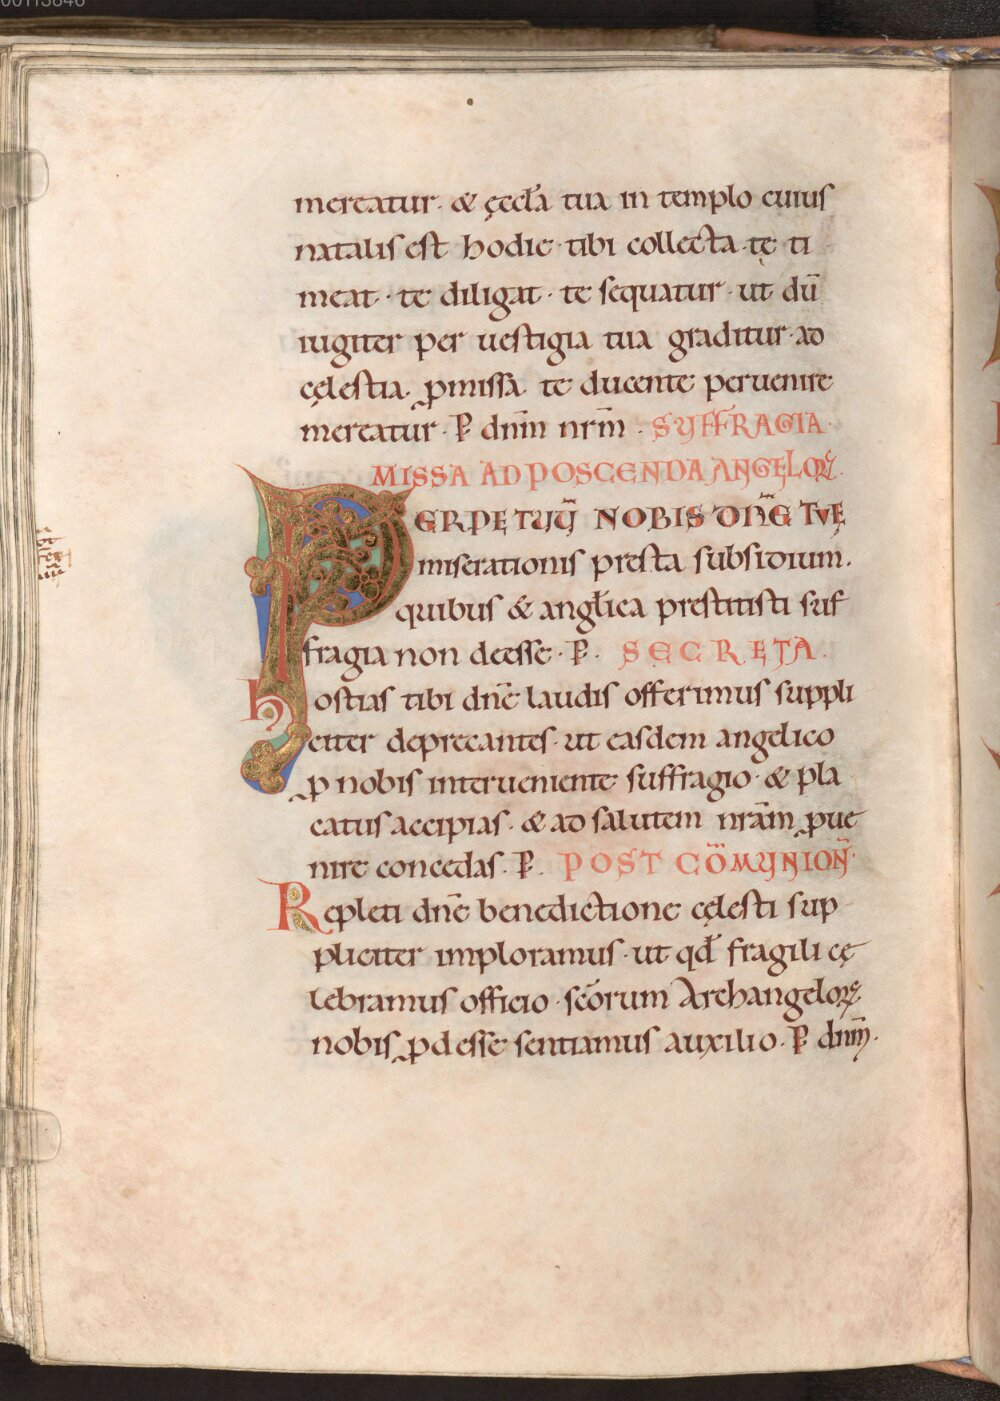 mereatur. & ęecl̄a tua in templo cuius
natalis est hodie tibi collecta. te ti
meat. te diligat. te sequatur. ut dū
iugiter per uestigia tua graditur. ad
cęlestia. ꝓmissa te ducente peruenire
mereatur. P̄ dn̄m nr̄m. SUFFRAGIA
MISSA AD POSCENDA ANGELOꝜ.
PERPETUŪ NOBIS DN̄E TUĘ
miserationis presta subsidium.
quibus & angl̄ica prestitisti suf
fragia non deesse. P̄. SECRETA.
hostias tibi dn̄e laudis offerimus suppli
citer deprecantes. ut easdem angelico
ꝓ nobis interueniente suffragio. & pla
catus accipias. & ad salutem nrām ꝓue
nire concedas. P̄. POST CŌMUNION̄.
Repleti dn̄e benedictione cęlesti sup
pliciter imploramus. ut qd̄ fragili cę
lebramus officio. scōrum Archangeloꝝ
nobis ꝓdesse sentiamus auxilio. P̄ dn̄m.